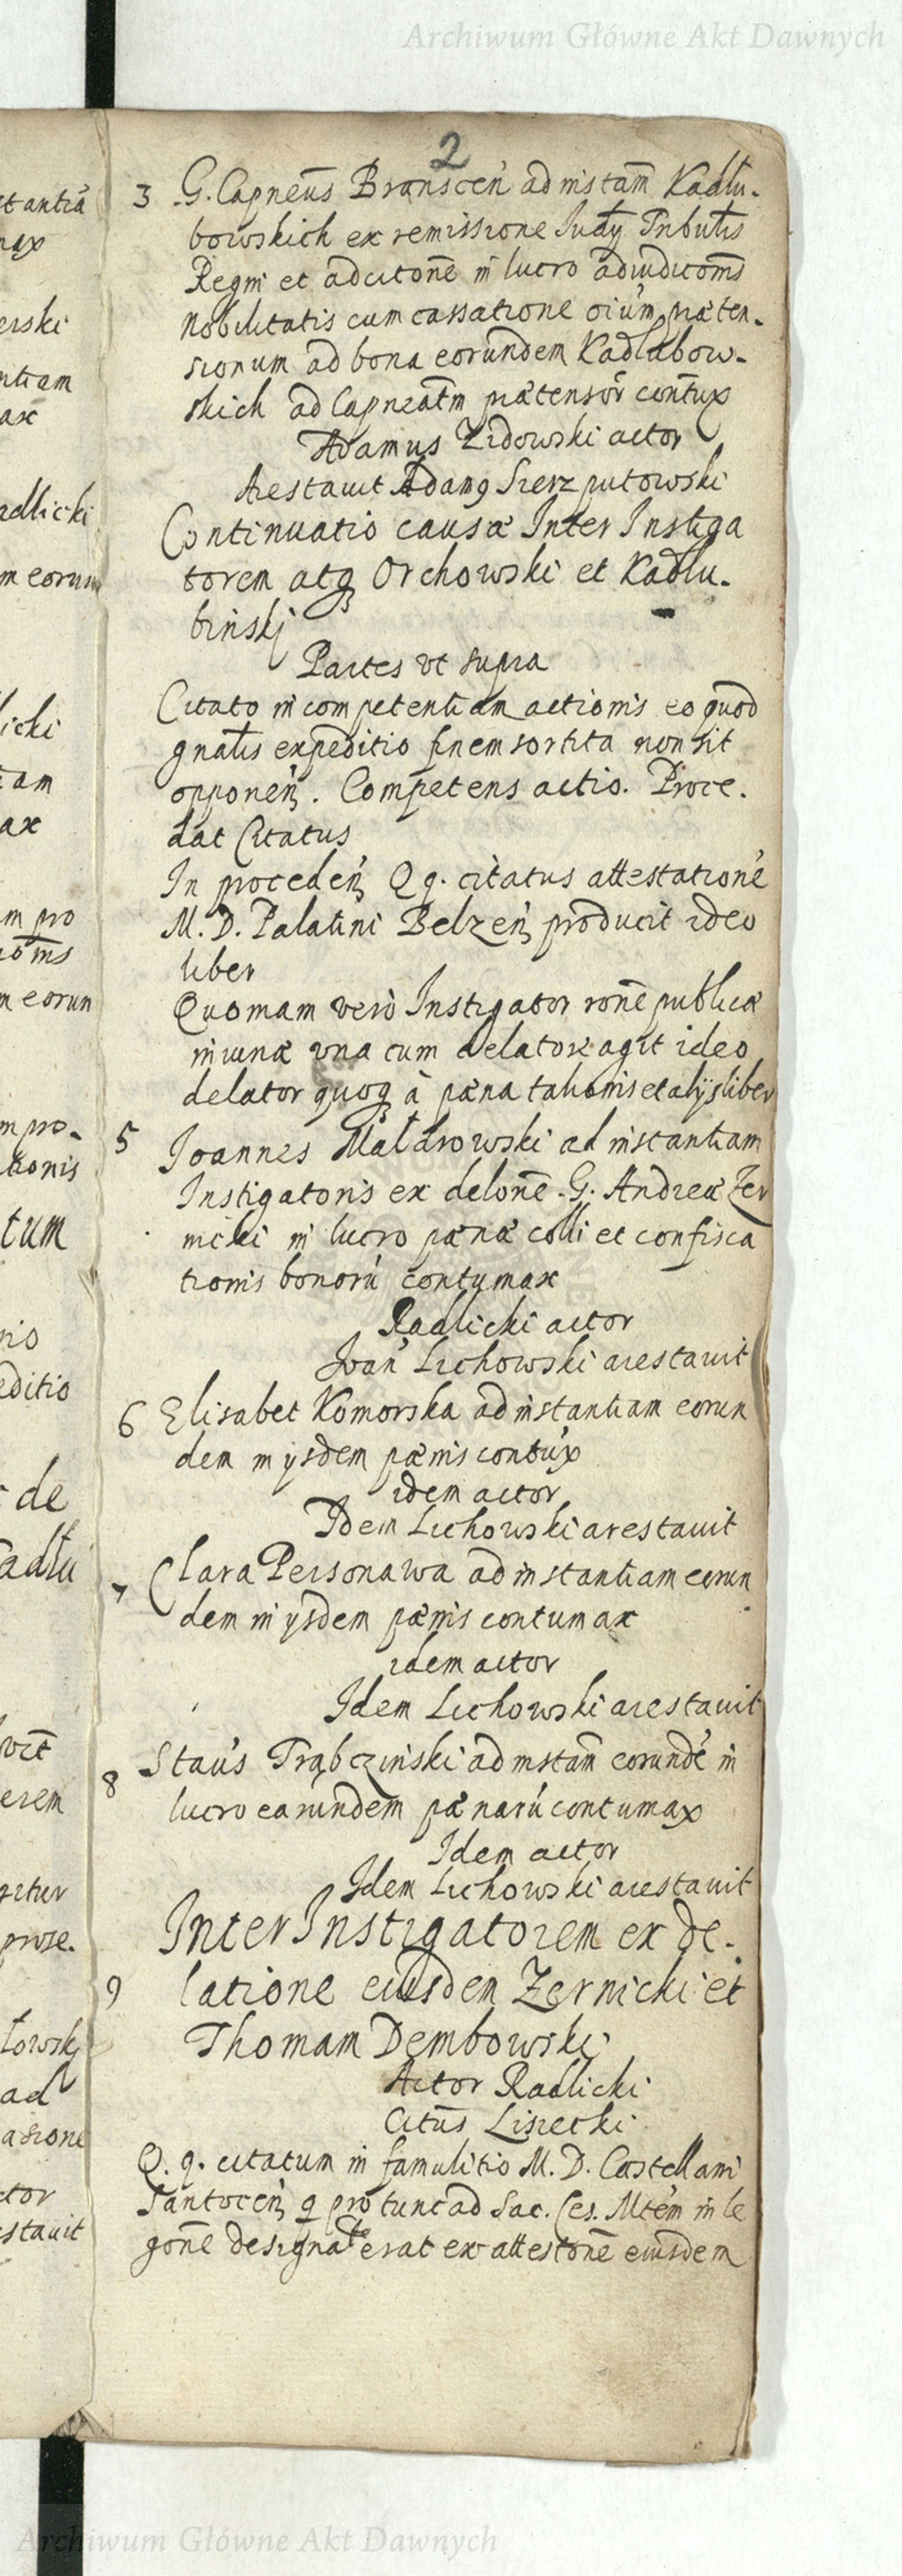 Archiwum Główne Akt Dawnych
2
3 G. Capneus Branscen ad instam Kadłu-
bowskich ex remissione Judy Tributis
Regni et ad citone in lucro adiuditoms
Nobilitatis cum cassatione oium præten-
sionum ad bona eorundem Kadłubow-
skich ad Capneatm prætensor contux
Adamus Zidowski actor
Arestavit Adam9 Sierzputowski
Continuatio causæ Inter Instiga
torem atq Orchowski et Kadłu-
binskj
Partes vt supra
Citato incompetentiam actionis eo quod
gnalis expeditio finem sortita non sit
opponen. Competens actio. Proce.
dat Citatus
In proceden Q q. citatus attestatione
M. D. Palatini Belzen producit ideo
liber
Quoniam vero Instigator rone publicæ
iniuriæ vna cum delatore agit ideo
delator quoq à pæna talionis et alijs liber
5 Joannes Małdrowski ad instantiam
Instigatoris ex delone G. Andreæ Zer
nicki in lucro pænæ colli et confisca
tionis bonorú contumax
Radlicki actor
Joan Lichowski arestavit
6 Elisabet Komorska ad instantiam eorun
dem in ijsdem pænis contux
idem actor
Idem Lichowski arestavit
7 Clara Personawa ad instantiam eorun
dem in ijsdem pænis contumax
idem actor
Idem Lichowski arestavit
8 Staus Trąbczinski ad instam eorunde in
lucro earundem pænarú contumax
Idem actor
Idem Lichowski arestavit
Inter Instigatorem ex de-
9 latione eiusdem Zernicki et
Thomam Dembowski
Actor Radlicki
Citus Lisiecki
Q. q. citatum in famulitio M. D. Castellani
Santocen q pro tunc ad Sac. Ces. Mtem in le
gone designate erat ex attestone eiusdem
Archiwum Główne Akt Dawnych